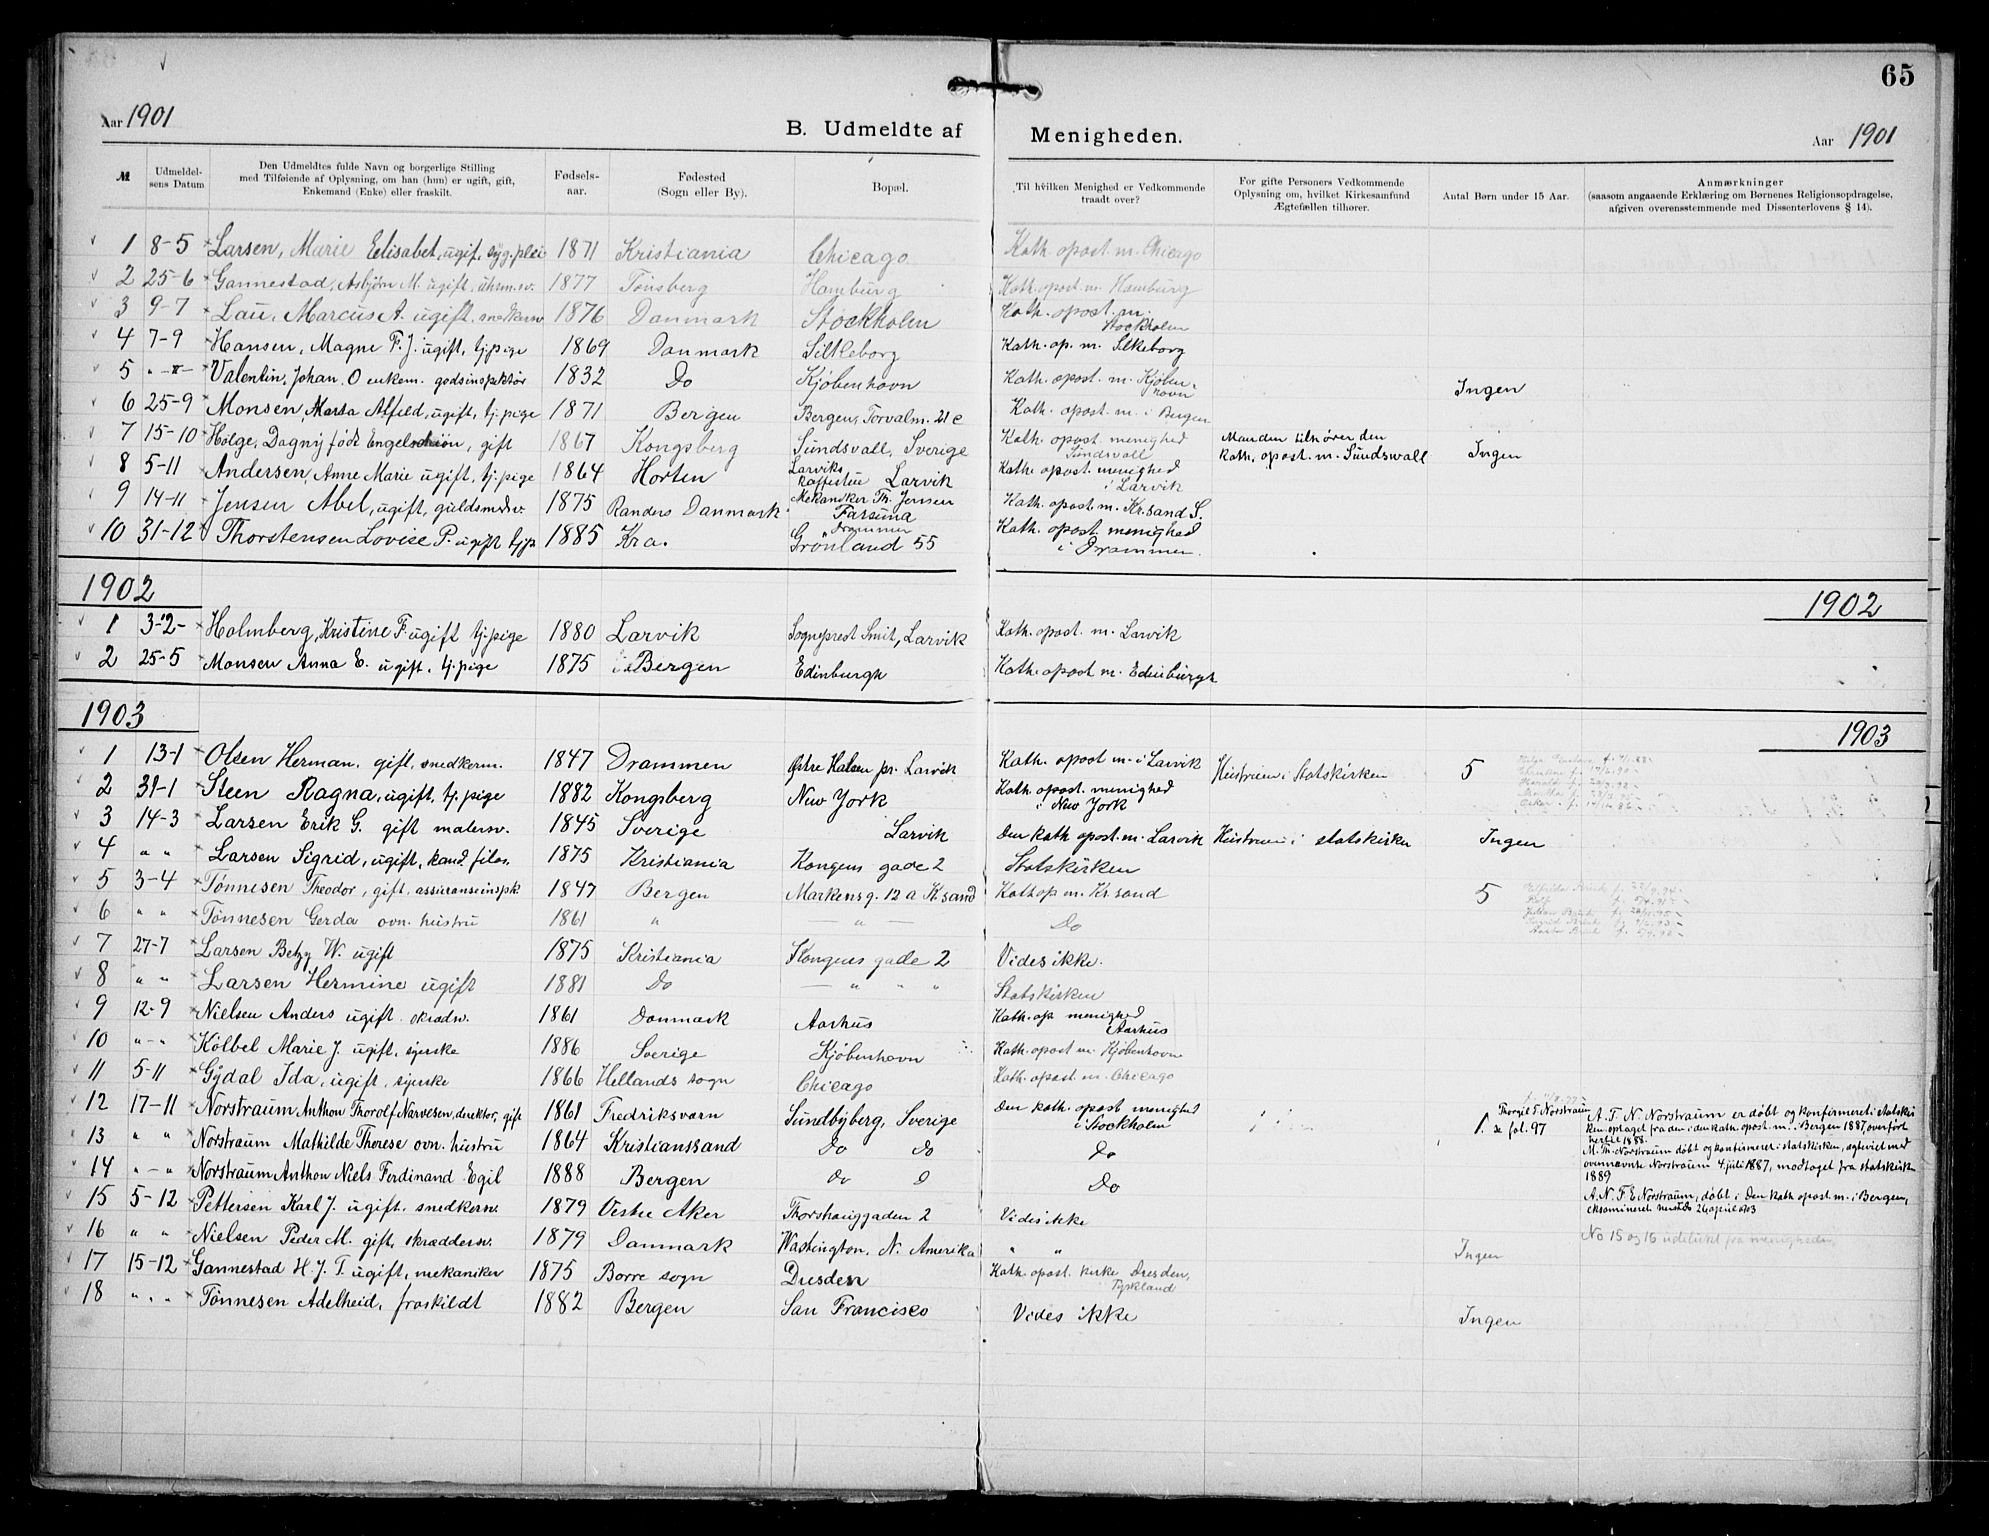 65
Aar 1901
B. Udmeldte af Menigheden.
Aar 1901
№ | Udmeldelsens Datum | Den Udmeldtes fulde Navn og borgerlige Stilling med Tilføiende af Oplysning, om han (hun) er ugift, gift, Enkemand (Enke) eller fraskilt. | Fødselsaar. | Fødested (Sogn eller By). | Bopæl. | Til hvilken Menighed er Vedkommende traadt over? | For gifte Personers Vedkommende Oplysning om, hvilket Kirkesamfund Ægtefællen tilhører. | Antal Børn under 15 Aar. | Anmærkninger (saasom angaaende Erklæring om Børnenes Religionsopdragelse, afgiven overensstemmende med Dissenterlovens § 14).
1 8-5 Larsen, Marie Elisabet, ugift, 1871 Kristiania Chicago Kath. apost. m. Chicago
2 25-6 Gannestad, Asbjörn M. ugift, uhrm.sv. 1877 Tönsberg Hamburg Kath. apost. m. Hamburg
3 9-7 Lau, Marcus A. ugift. snedkersv. 1876 Danmark Stockholm Kath. apost. m. Stockholm
4 7-9 Hansen, Magne F. J. ugift, tj.pige 1869 Danmark Silkeborg Kath. ap. m. Silkeborg
5 Valentin, Johan. O enkem. godsinspektör 1832 Do Kjøbenhavn Kath. apost. m. Kjøbenhavn Ingen
6 25-9 Monsen, Marta Alfild, ugift, tj.pige 1871 Bergen Bergen, Torvalm. 21 c Kath. apost. m. i Bergen
7 15-10 Holge, Dagny født Engelschiøn, gift 1867 Kongsberg Sundsvall, Sverige Kath. apost. menighed Sundsvall Manden tilhører den kath. apost. m. Sundswall Ingen
8 5-11 Andersen, Anne Marie ugift, tj.pige 1864 Horten Larviks Kaffestue Larvik Kath. apost. menighed i Larvik
9 14-11 Jensen Abel, ugift, guldsmedsv. 1875 Randers Danmark Mekaniker Th. Jensen Farsund Kath. apost. m. Kr.sand S.
10 31-12 Thorstensen Lovise P. ugift tjp. 1885 Kra. Grönland 55 Drammen Kath. apost menighed i Drammen.
1902 1902
1 3-2- Holmberg, Kristine F. ugift tj.pige 1880 Larvik Sogneprest Smit, Larvik Kath. apost. m. Larvik
2 25-5 Monsen Anna E. ugift, tj.pige 1875 Bergen Edinburgh Kath. apost m. Edinburgh
1903 1903
1 13-1 Olsen Herman, gift, snedkerm. 1847 Drammen Østre Halsen pr. Larvik Kath. apost m. i Larvik Hustruen i Statskirken 5
2 31-1 Steen Ragna, ugift, tj.pige 1882 Kongsberg New York Kath. apost menighed i New York
3 14-3 Larsen Erik G. gift malersv. 1845 Sverige Larvik Den kath apost. m. Larvik Hustruen i statskirken Ingen
4 " " Larsen Sigrid, ugift, kand. filos. 1875 Kristiania Kongens gade 2 Statskirken
5 3-4 Tönnesen Theodor, gift, assuranseinspk. 1847 Bergen Markensg. 12 a Kr.sand Kath ap m. Kr.sand 5
6 " " Tönnesen Gerda ovn. hustru 1861 " — " — Do
7 27-7 Larsen Betzy W. ugift 1875 Kristiania Kongens gade 2 Vides ikke.
8 " " Larsen Hermine ugift 1881 Do — " " " Statskirken
9 12-9 Nielsen Anders ugift. skrædsv. 1861 Danmark Aarhus Kath. ap menighed Aarhus
10 "-"- Kölbel Marie J. ugift, syerske 1886 Sverige Kjøbenhavn Kath. apost m. Kjøbenhavn
11 5-11 Gÿdal Ida, ugift, syerske 1866 Hellands sogn Chicago Kath. apost. m. Chicago
12 17-11 Norstraum Anthon Thorolf Narvesen, direktør, gift 1861 Fredriksvarn Sundbyberg, Sverige Den kath. apost menighed i Stockholm 1. Thorgil T. Norstraum se fol. 97
A. T. N. Norstraum er døbt og konfirmeret i statskirken, optaget fra den i den kath. apost. m. i Bergen 1887, overført hertil 1888.
13 " " Norstraum Mathilde Therese ovn. hustru 1864 Kristianssand Do Do Do
M. Th. Norstraum døbt og konfirmeret i statskirken, egteviet med ovennævnte Norstraum 4 juli 1887, modtaget fra statskirken 1889
14 "-" Norstraum Anthon Niels Ferdinand Egil 1888 Bergen do D Do
A. N. F. E Norstraum, døbt i Den kath apost. m. i Bergen, eksamineret 26 april 1903
15 5-12 Pettersen Karl J. ugift. snedkersv. 1879 Vestre Aker Thorshauggaden 2 Vides ikke
No 15 og 16 udelukt fra menigheden.
16 " " Nielsen Peder M. gift, skræddersv. 1879 Danmark Washington, N. Amerika " " Ingen
17 15-12 Gannestad H. J. T. ugift, mekaniker 1875 Borre sogn Dresden Kath. apost. kirke Dresden, Tyskland
18 " . " Tönnesen Adelheid, fraskildt 1882 Bergen San Francisco Vides ikke Ingen